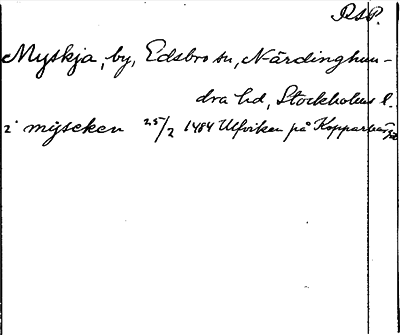 RSP.
Myskja, by, Edsbro sn, Närdinghun-
dra hd, Stockholms l.
i myseken 25/2 1484 Ulfviken på Kopparberg